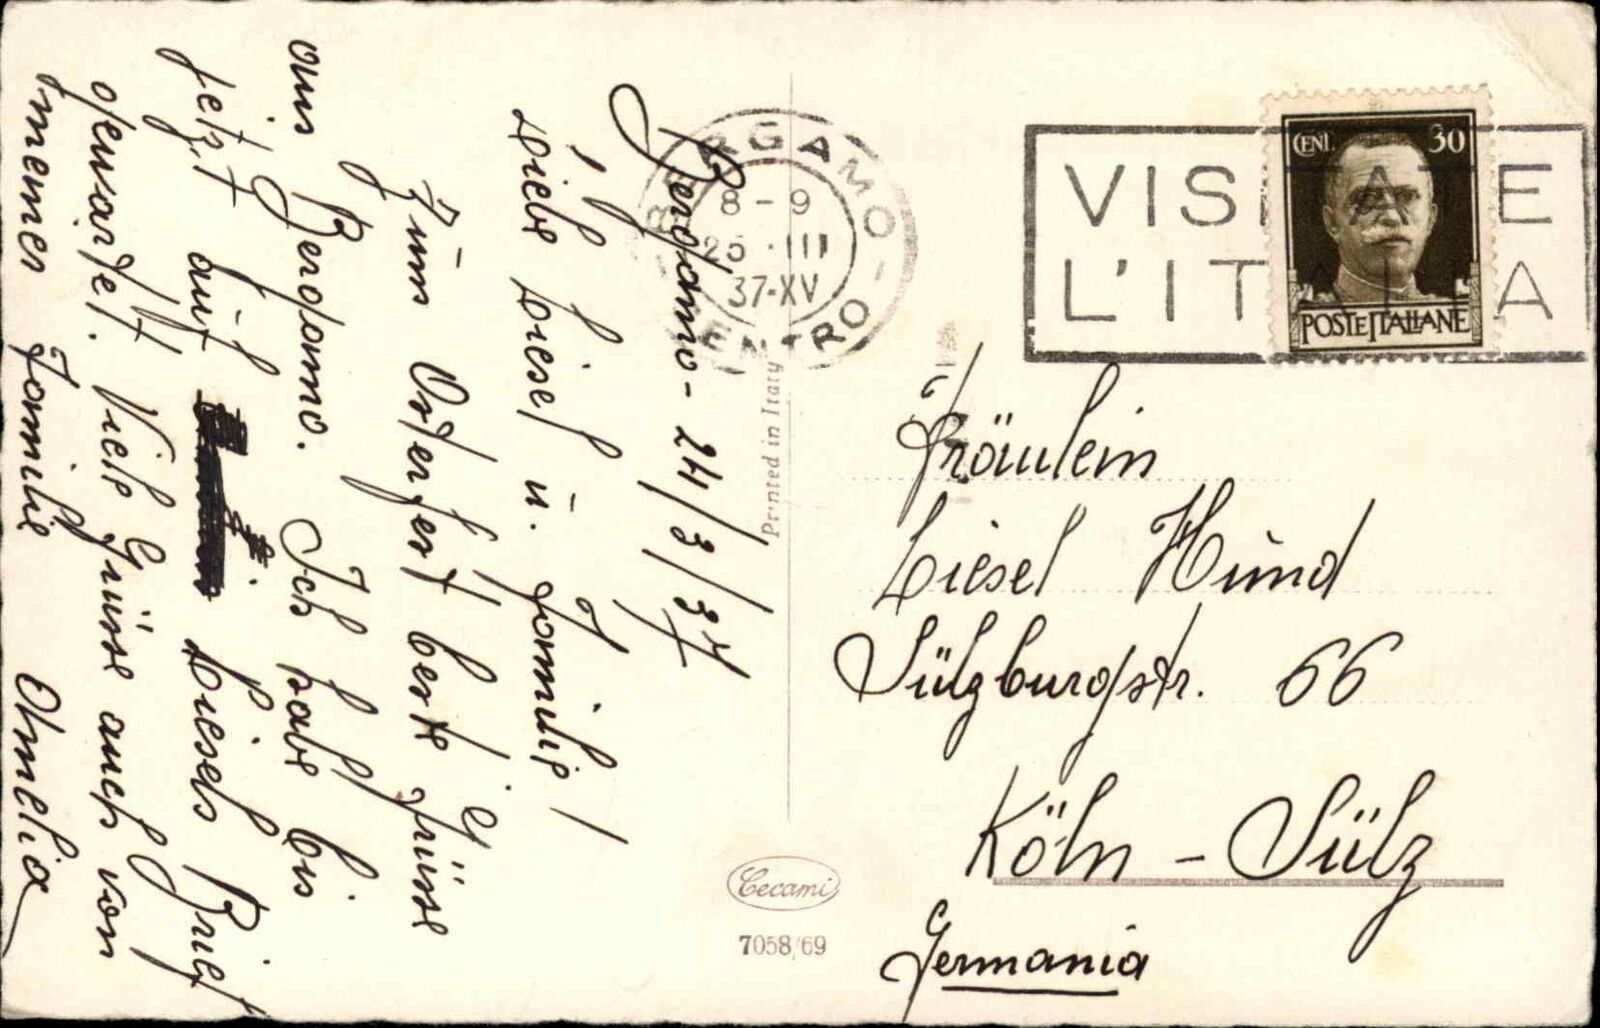 Bergamo - 24/3/37
Liebe Liesel u. Familie!
Zum Osterfest beste Grüsse
aus Bergamo. Ich habe bis
jetzt auf Liesels Brief
gewartet. Viele Grüsse auch von
meiner Familie Amelia
BERGAMO
8-9
25.III
37-XV
CENTRO
VISITATE
L'ITALIA
CENT. 30
POSTE ITALIANE
Printed in Italy
Fräulein
Liesel Hund
Sülzburgstr. 66
Köln - Sülz
Germania
Cecami
7058/69